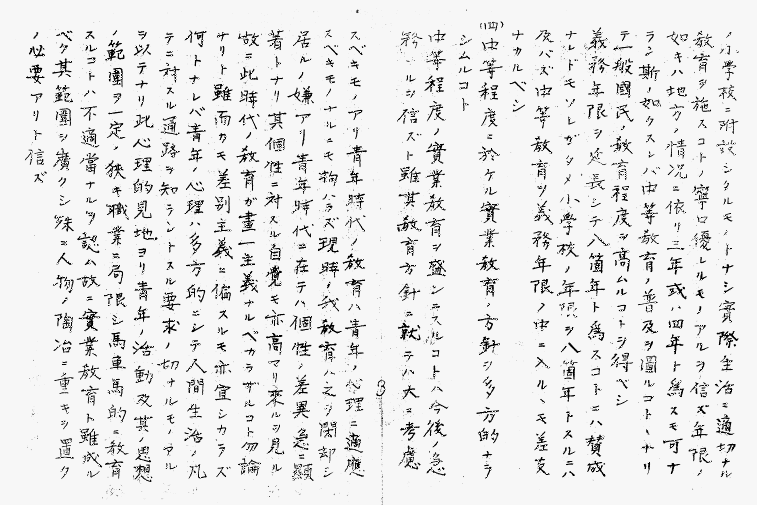 ノ小學校ニ附設シタルモノトナシ實際生活ニ適切ナル
教育ヲ施スコトノ寧ロ優レルモノアルヲ信ズ年限ノ
如キハ地方ノ情況ニ依リ三年或ハ四年ト爲スモ可ナ
ラン斯ノ如クスレバ中等教育ノ普及ヲ圖ルコトヽナリ
テ一般國民ノ教育程度ヲ高ムルコトヲ得ベシ
義務年限ヲ延長シテ八箇年ト爲スコトニハ賛成
ナレドモソレガタメ小學校ノ年限ヲ八箇年トスルニハ
及バズ中等教育ヲ義務年限ノ中ニ入ルヽモ差支
ナカルベシ
(四)中等程度ニ於ケル實業教育ノ方針ヲ多方的ナラ
シムルコト
中等程度ノ實業教育ヲ盛ンニスルコトハ今後ノ急
務ナルヲ信ズト雖其教育方針ニ就テハ大ニ考慮
3
スベキモノアリ青年時代ノ教育ハ青年ノ心理ニ適應
スベキモノナルニモ拘ハラズ現時ノ我教育ハ之ヲ閑却シ
居ルノ嫌アリ青年時代ニ在テハ個性ノ差異急ニ顯
著トナリ其個性ニ對スル自覺モ亦高マリ來ルヲ見ル
故ニ此時代ノ教育ガ畫一主義ナルベカラザルコト勿論
ナリト雖而カモ差別主義ニ偏スルモ亦宜シカラズ
何トナレバ青年ノ心理ハ多方的ニシテ人間生活ノ凡
テニ對スル通路ヲ知ラントスル要求ノ切ナルモノアル
ヲ以テナリ此心理的見地ヨリ青年ノ活動及其ノ思想
ノ範圍ヲ一定ノ狹キ職業ニ局限シ馬車馬的ニ教育
スルコトハ不適當ナルヲ認ム故ニ實業教育ト雖成ル
ベク其範圍ヲ廣クシ殊ニ人物ノ陶冶ニ重キヲ置ク
ノ必要アリト信ズ